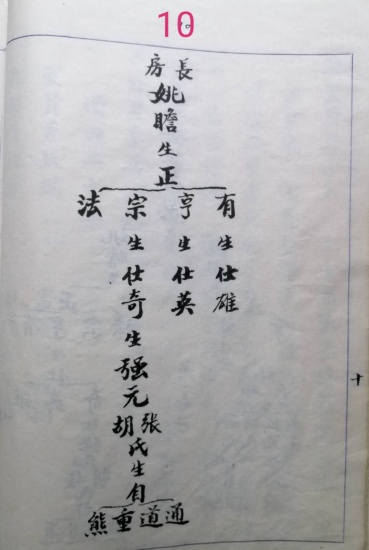 10
長房
姚瞻生正
有生仕雄
亨生仕英
宗生仕奇生强元
張胡氏生自
通道重熊
法
十